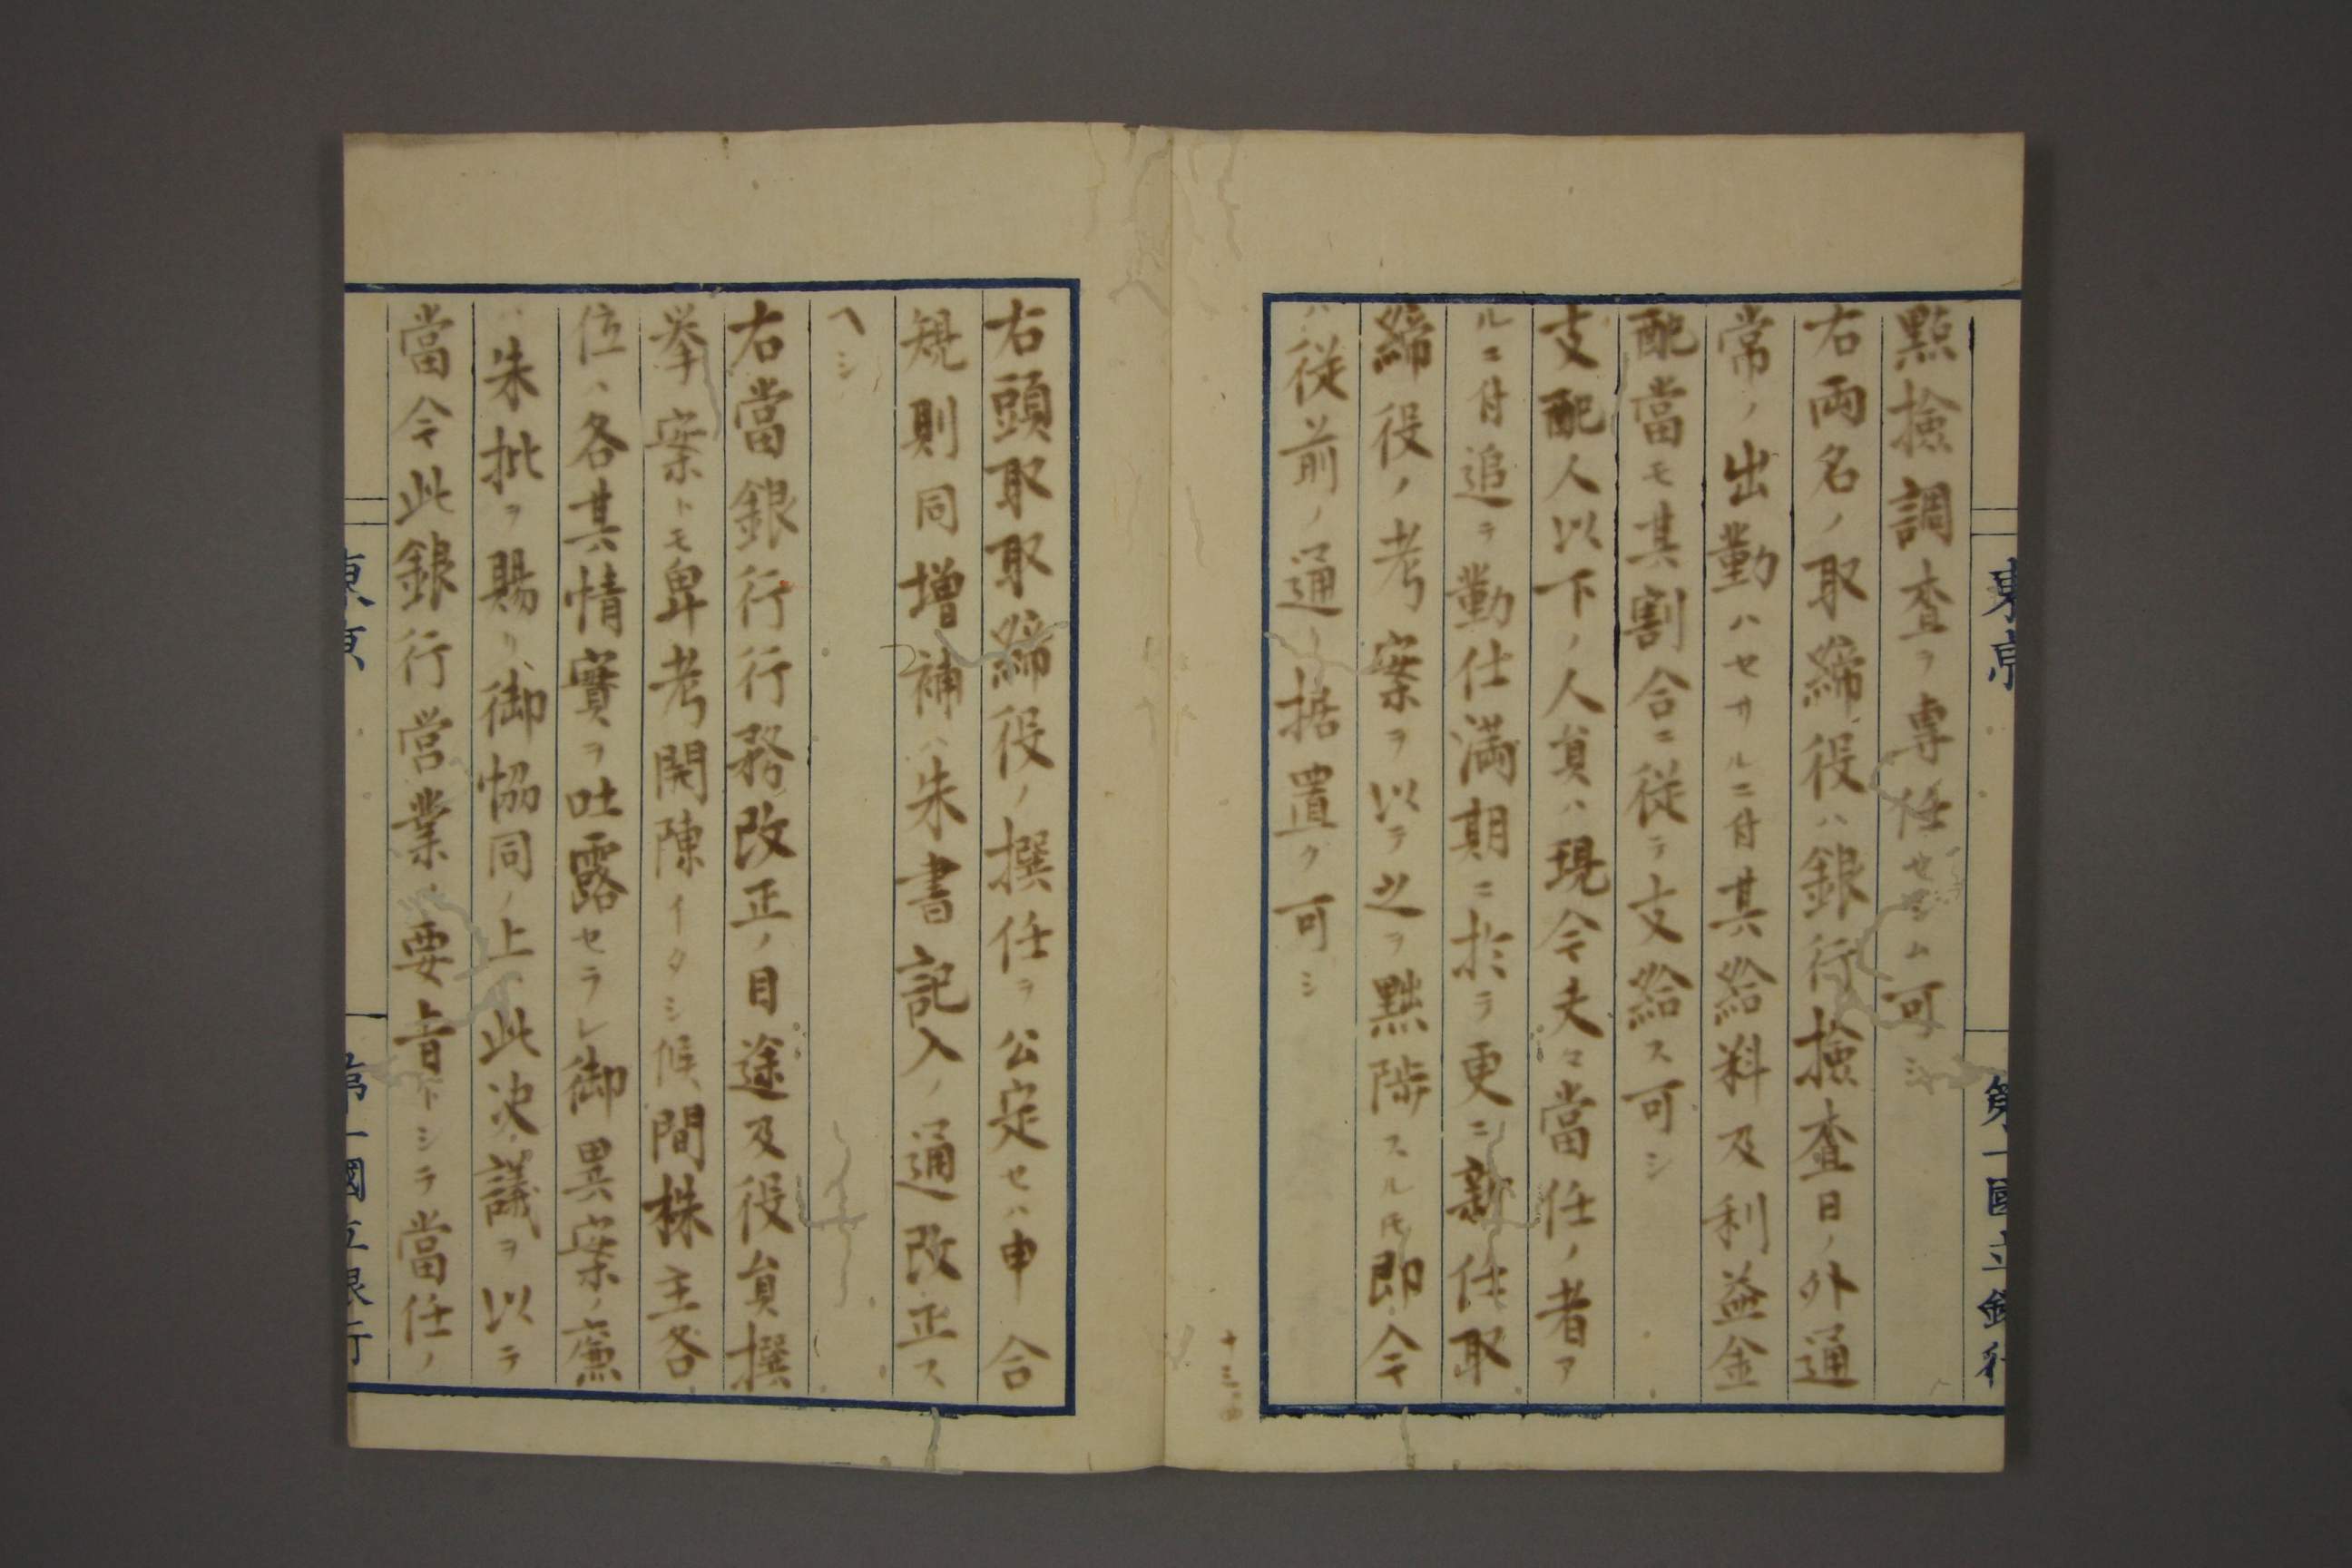 東京
第一國立銀行
點撿調査ヲ専任セシム可シ
右両名ノ取締役ハ銀行撿査日ノ外通
常ノ出勤ハセサルニ付其給料及利益金
配當モ其割合ニ従テ支給ス可シ
支配人以下ノ人負ハ現今夫々當任ノ者ア
ルニ付追テ勤仕満期ニ於テ更ニ新任取
締役ノ考案ヲ以テ之ヲ黜陟スル𪜈即今
ハ従前ノ通リ据置ク可シ
十三
右頭取取締役ノ撰任ヲ公定セハ申合
規則同増補ハ朱書記入ノ通改正ス
ヘシ
右當銀行行務改正ノ目途及役負撰
挙案トモ卑考開陳イタシ候間株主各
位ハ各其情實ヲ吐露セラレ御異案ノ廉
ハ朱批ヲ賜リ御恊同ノ上此决議ヲ以テ
當今此銀行営業ノ要旨トシテ當任ノ
東京
第一國立銀行